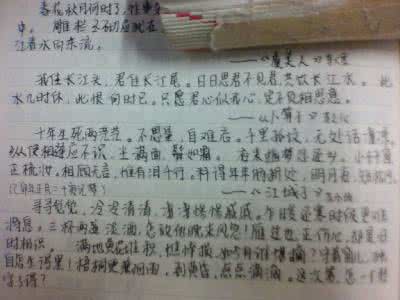 春花秋月何时了,往事
中。雕栏玉砌应犹在
江春水向东流。
——《虞美人》李煜
我住长江头,君住长江尾。日日思君不见君,共饮长江水。此
水几时休,此恨何时已。只愿君心似我心,定不负相思意。
——《卜算子》李之仪
十年生死两茫茫。不思量,自难忘。千里孤坟,无处话凄凉。
纵使相逢应不识,尘满面,鬓如霜。夜来幽梦忽还乡。小轩窗,
正梳妆。相顾无言,惟有泪千行。料得年年断肠处,明月夜,短松冈。
——《江城子》苏
寻寻觅觅,冷冷清清,凄凄惨惨戚戚。乍暖还寒时候,最难
消息。三杯两盏淡酒,怎敌他晚来风急!雁过也,正伤心,却是旧
时相识。满地黄花堆积,憔悴损,如今有谁堪摘?守着窗儿,独
自怎生得黑!梧桐更兼细雨,到黄昏,点点滴滴。这次第,怎一个愁
字了得?